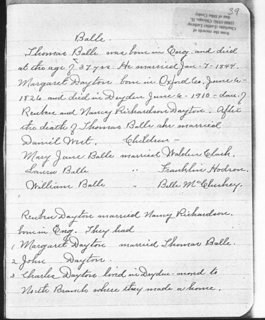 29
Balle
Thomas Balle was born in Eng. and died
at the age of 87 yrs. He married Jan-7-1844.
Margaret Dayton born in Oxford Co. June 6-
1826 and died in June 6-1910 - dau. of
Reuben and Nancy Richardson Dayton. After
the death of Thomas Balle she married
Daniel Children -
Mary Jane Balle married Clark.
Laura Balle " Franklin
William Balle " Belle
Reuben Dayton married Nancy Richardson.
born in Eng. They had
1 Margaret Dayton married Thomas Balle
2 John Dayton
3. Charles Dayton lived in moved to
North where they made a home.